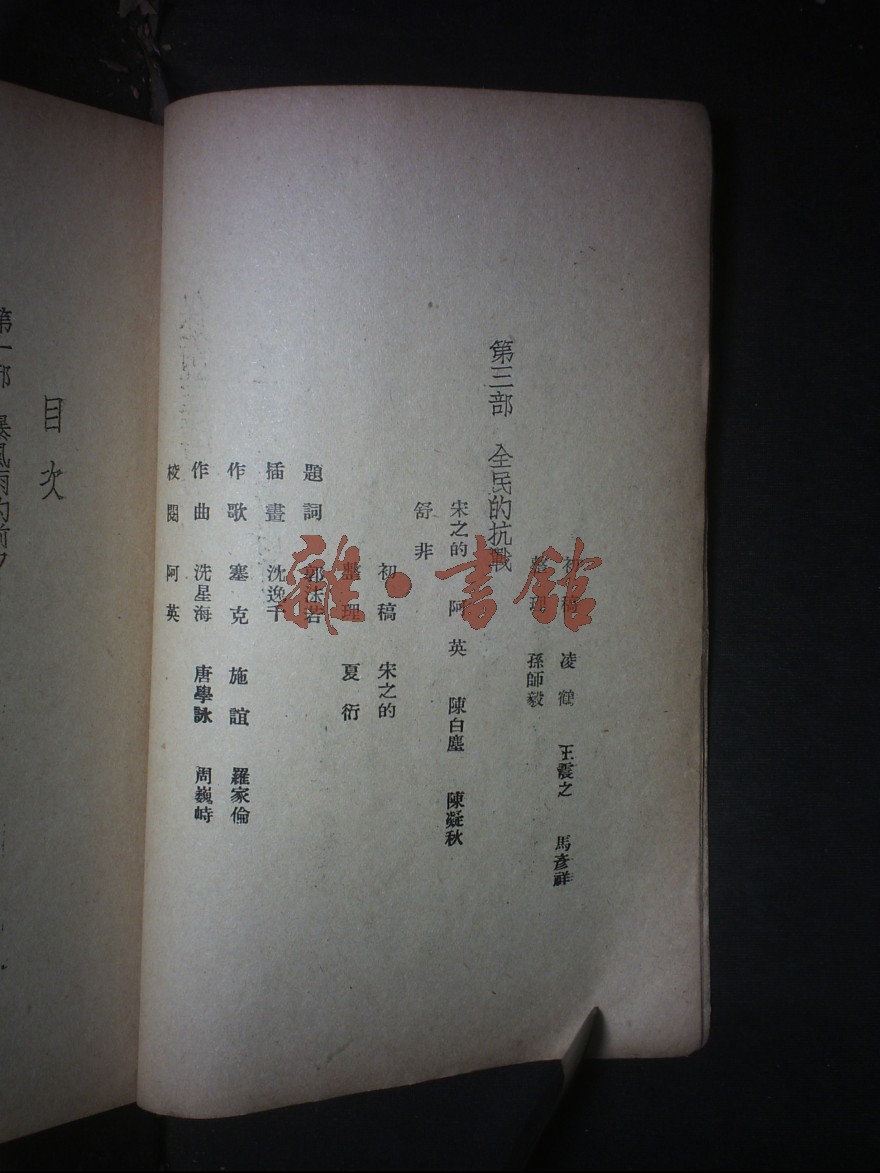 初稿 凌鶴 王震之 馬彥祥
整理 孫師毅
第三部 全民的抗戰
宋之的 阿英 陳白塵 陳凝秋
舒非
初稿 宋之的
整理 夏衍
題詞 郭沫若
插畫 沈逸千
作歌 塞克 施誼 羅家倫
作曲 洗星海 唐學詠 周巍峙
校閱 阿英
目次
第一部 暴風雨的前夕
雜·書館